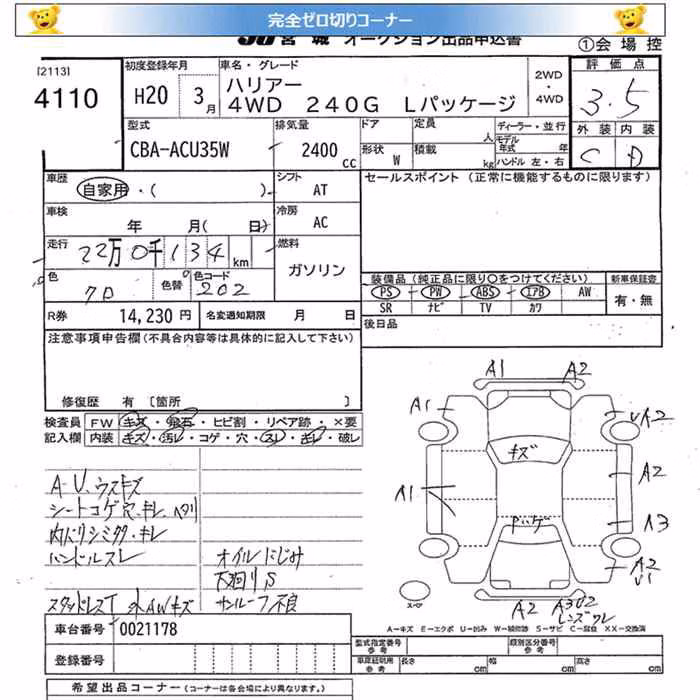 完全ゼロ切りコーナー
宮城 オークション出品申込書
①会場控
[2113]
4110
初度登録年月
H20 3月
車名・グレード
ハリアー
4WD 240G Lパッケージ
2WD
・
4WD
評価点
3.5
外装 内装
C D
型式
CBA-ACU35W
排気量
2400cc
ドア
形状 W
定員 人
積載 kg
ディーラー・並行
モデル年式 年
ハンドル 左・右
車歴
自家用・( )
シフト
AT
セールスポイント (正常に機能するものに限ります)
車検
年 月( 日)
冷房
AC
走行
22万0千134km
燃料
ガソリン
色
クロ
色替
色コード
202
装備品(純正品に限り○をつけてください)
PS・PW・ABS・エアB・AW
SR ナビ TV カワ
新車保証書
有・無
R券 14,230円
名変通知期限 月 日
後日品
注意事項申告欄(不具合内容等は具体的に記入して下さい)
修復歴 有 [箇所
検査員記入欄
FW キズ・飛石・ヒビ割・リペア跡・×要
内装 キズ・汚レ・コゲ・穴・スレ・キレ・破レ
A-U、ウスキズ
シートコゲ穴、キレ、ヘタリ
内ハリシミタク、キレ
ハンドルスレ
オイルにじみ
下廻りS
スタッドレスT
AWキズ
サンルーフ不良
A1 A2
A1
A2
キズ
A2
A1
A3
ハゲ
A2
U1
スペア
A2 A3U2
レンズワレ
A－キズ E－エクボ U－凹み W－補修跡 S－サビ C－腐食 XX－交換済
車台番号 0021178
登録番号
型式指定番号
参考
類別区分番号
参考
車庫証明用
参考
長さ cm
幅 cm
高さ cm
希望出品コーナー (コーナーは各会場により異なります。)